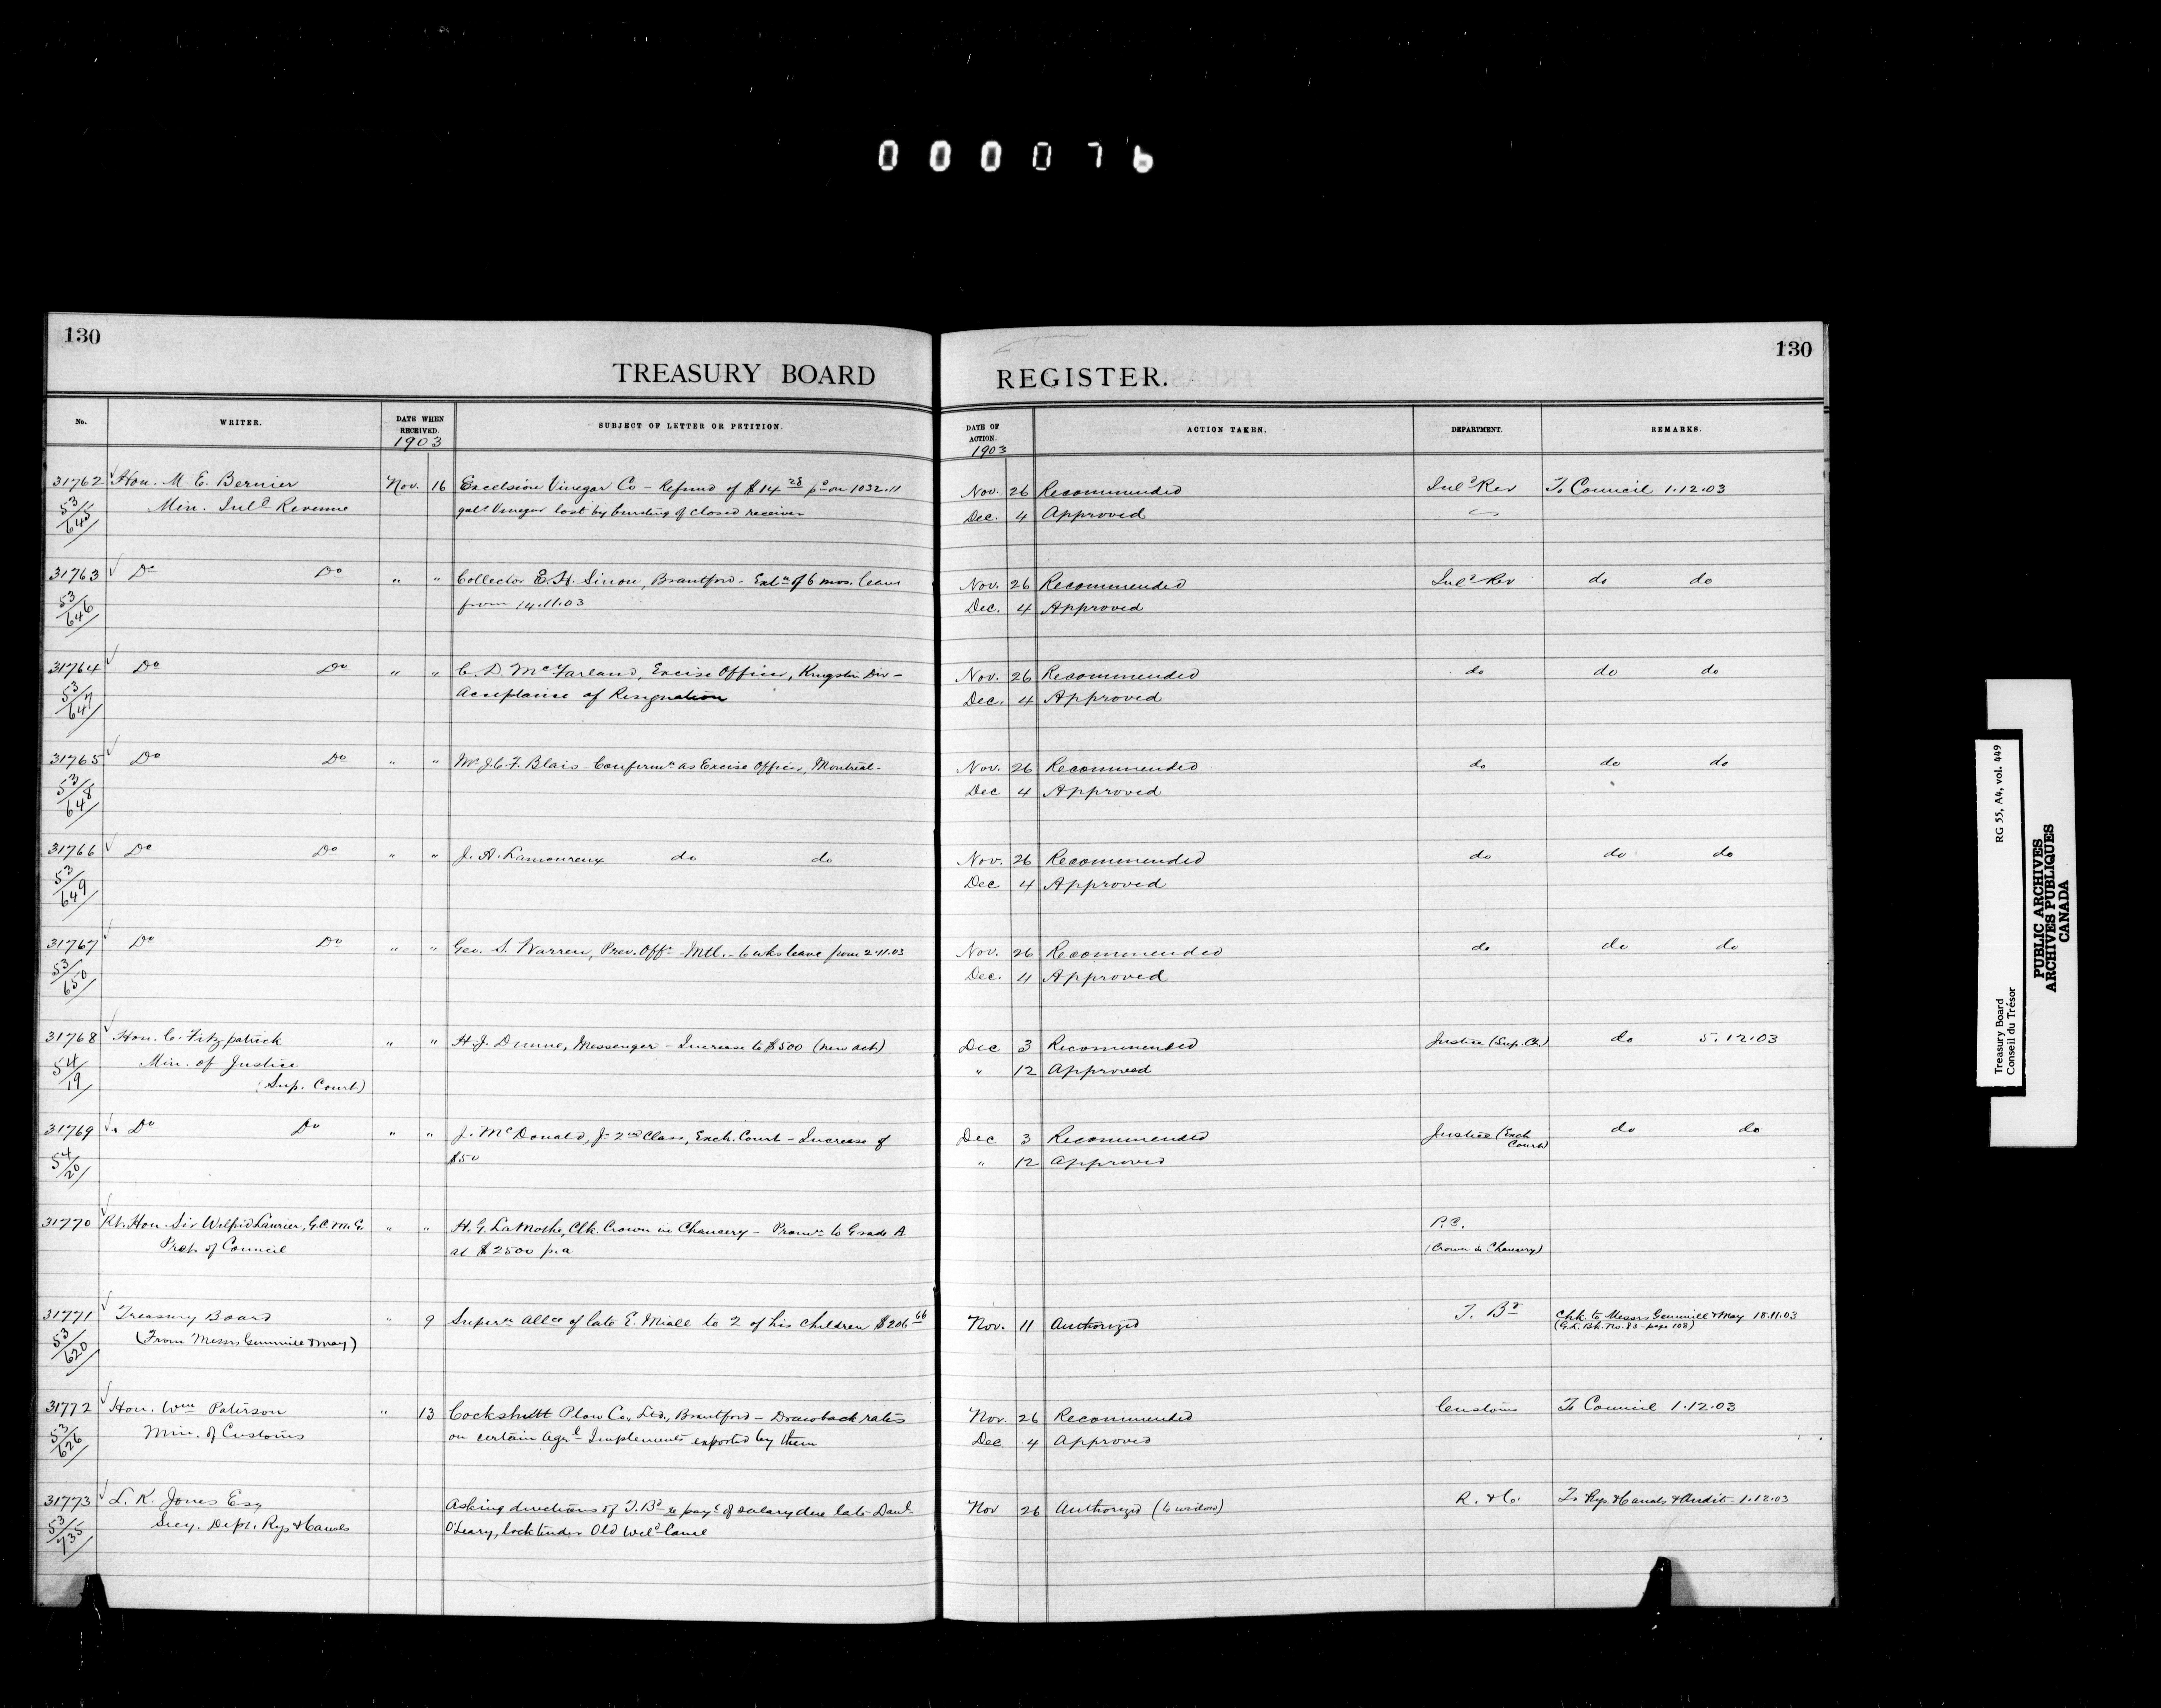 000076
130
TREASURY BOARD
No.
WRITER.
DATE WHEN RECEIVED.
1903
SUBJECT OF LETTER OR PETITION.
31762 Hon. M. E. Bernier Nov. 16 Excelsior Vinegar Co – Refund of $14 28 pd on 1032.11
53/645 Min. Inld Revenue galls Vinegar lost by bursting of closed receiver
31763 Do Do " " Collector E. H. Sinon, Brantford – Extn of 6 mos. leave
53/646 from 14.11.03
31764 Do Do " " C. D. McFarland, Excise Officer, Kingston Div –
53/647 Acceptance of Resignation
31765 Do Do " " Mr J. C. F. Blais – Confirmn as Excise Officer, Montreal –
53/648
31766 Do Do " " J. A. Lamoureux do do
53/649
31767 Do Do " " Geo. S. Warren, Prev. Offr – Mtl. – 6 wks leave from 2.11.03
53/650
31768 Hon. C. Fitzpatrick " " H. J. Dunne, Messenger – Increase to $500 (new act)
54/19 Min. of Justice
(Sup. Court)
31769 Do Do " " J. McDonald, Jr 2nd Class, Exch. Court – Increase of
54/20 $50
31770 Rt. Hon. Sir Wilfrid Laurier, G.C.M.G. " " H. G. LaMothe, Clk. Crown in Chancery – Promn to Grade A
Prest of Council at $2500 p.a
31771 Treasury Board " 9 Supern Allce of late E. Miall to 2 of his children $206 66
53/620 (From Messrs Gemmill & May)
31772 Hon. Wm Paterson " 13 Cockshutt Plow Co., Ltd., Brantford – Drawback rates
53/626 Min. of Customs on certain Agrl Implements exported by them
31773 L. K. Jones Esq Asking directions of T. Bd re payt of salary due late Danl
53/735 Secy. Dept. Rys & Canals O'Leary, lock tender Old Weld Canal
130
REGISTER.
DATE OF ACTION.
1903
ACTION TAKEN.
DEPARTMENT.
REMARKS.
Nov. 26 Recommended Inld Rev To Council 1.12.03
Dec. 4 Approved
Nov. 26 Recommended Inld Rev do do
Dec. 4 Approved
Nov. 26 Recommended do do do
Dec. 4 Approved
Nov. 26 Recommended do do do
Dec 4 Approved
Nov. 26 Recommended do do do
Dec 4 Approved
Nov. 26 Recommended do do do
Dec. 4 Approved
Dec 3 Recommended Justice (Sup. Ct.) do 5.12.03
" 12 Approved
Dec 3 Recommended Justice (Exch Court) do do
" 12 Approved
P.C.
(Crown in Chancery)
Nov. 11 Authorized T. Bd Chk. to Messrs Gemmill & May 18.11.03
(G.L. Bk. No. 83 – page 108)
Nov. 26 Recommended Customs To Council 1.12.03
Dec 4 Approved
Nov 26 Authorized (to widow) R. & C. To Rys. & Canals & Audit – 1.12.03
Treasury Board
Conseil du Trésor
RG 55, A4, vol. 449
PUBLIC ARCHIVES
ARCHIVES PUBLIQUES
CANADA